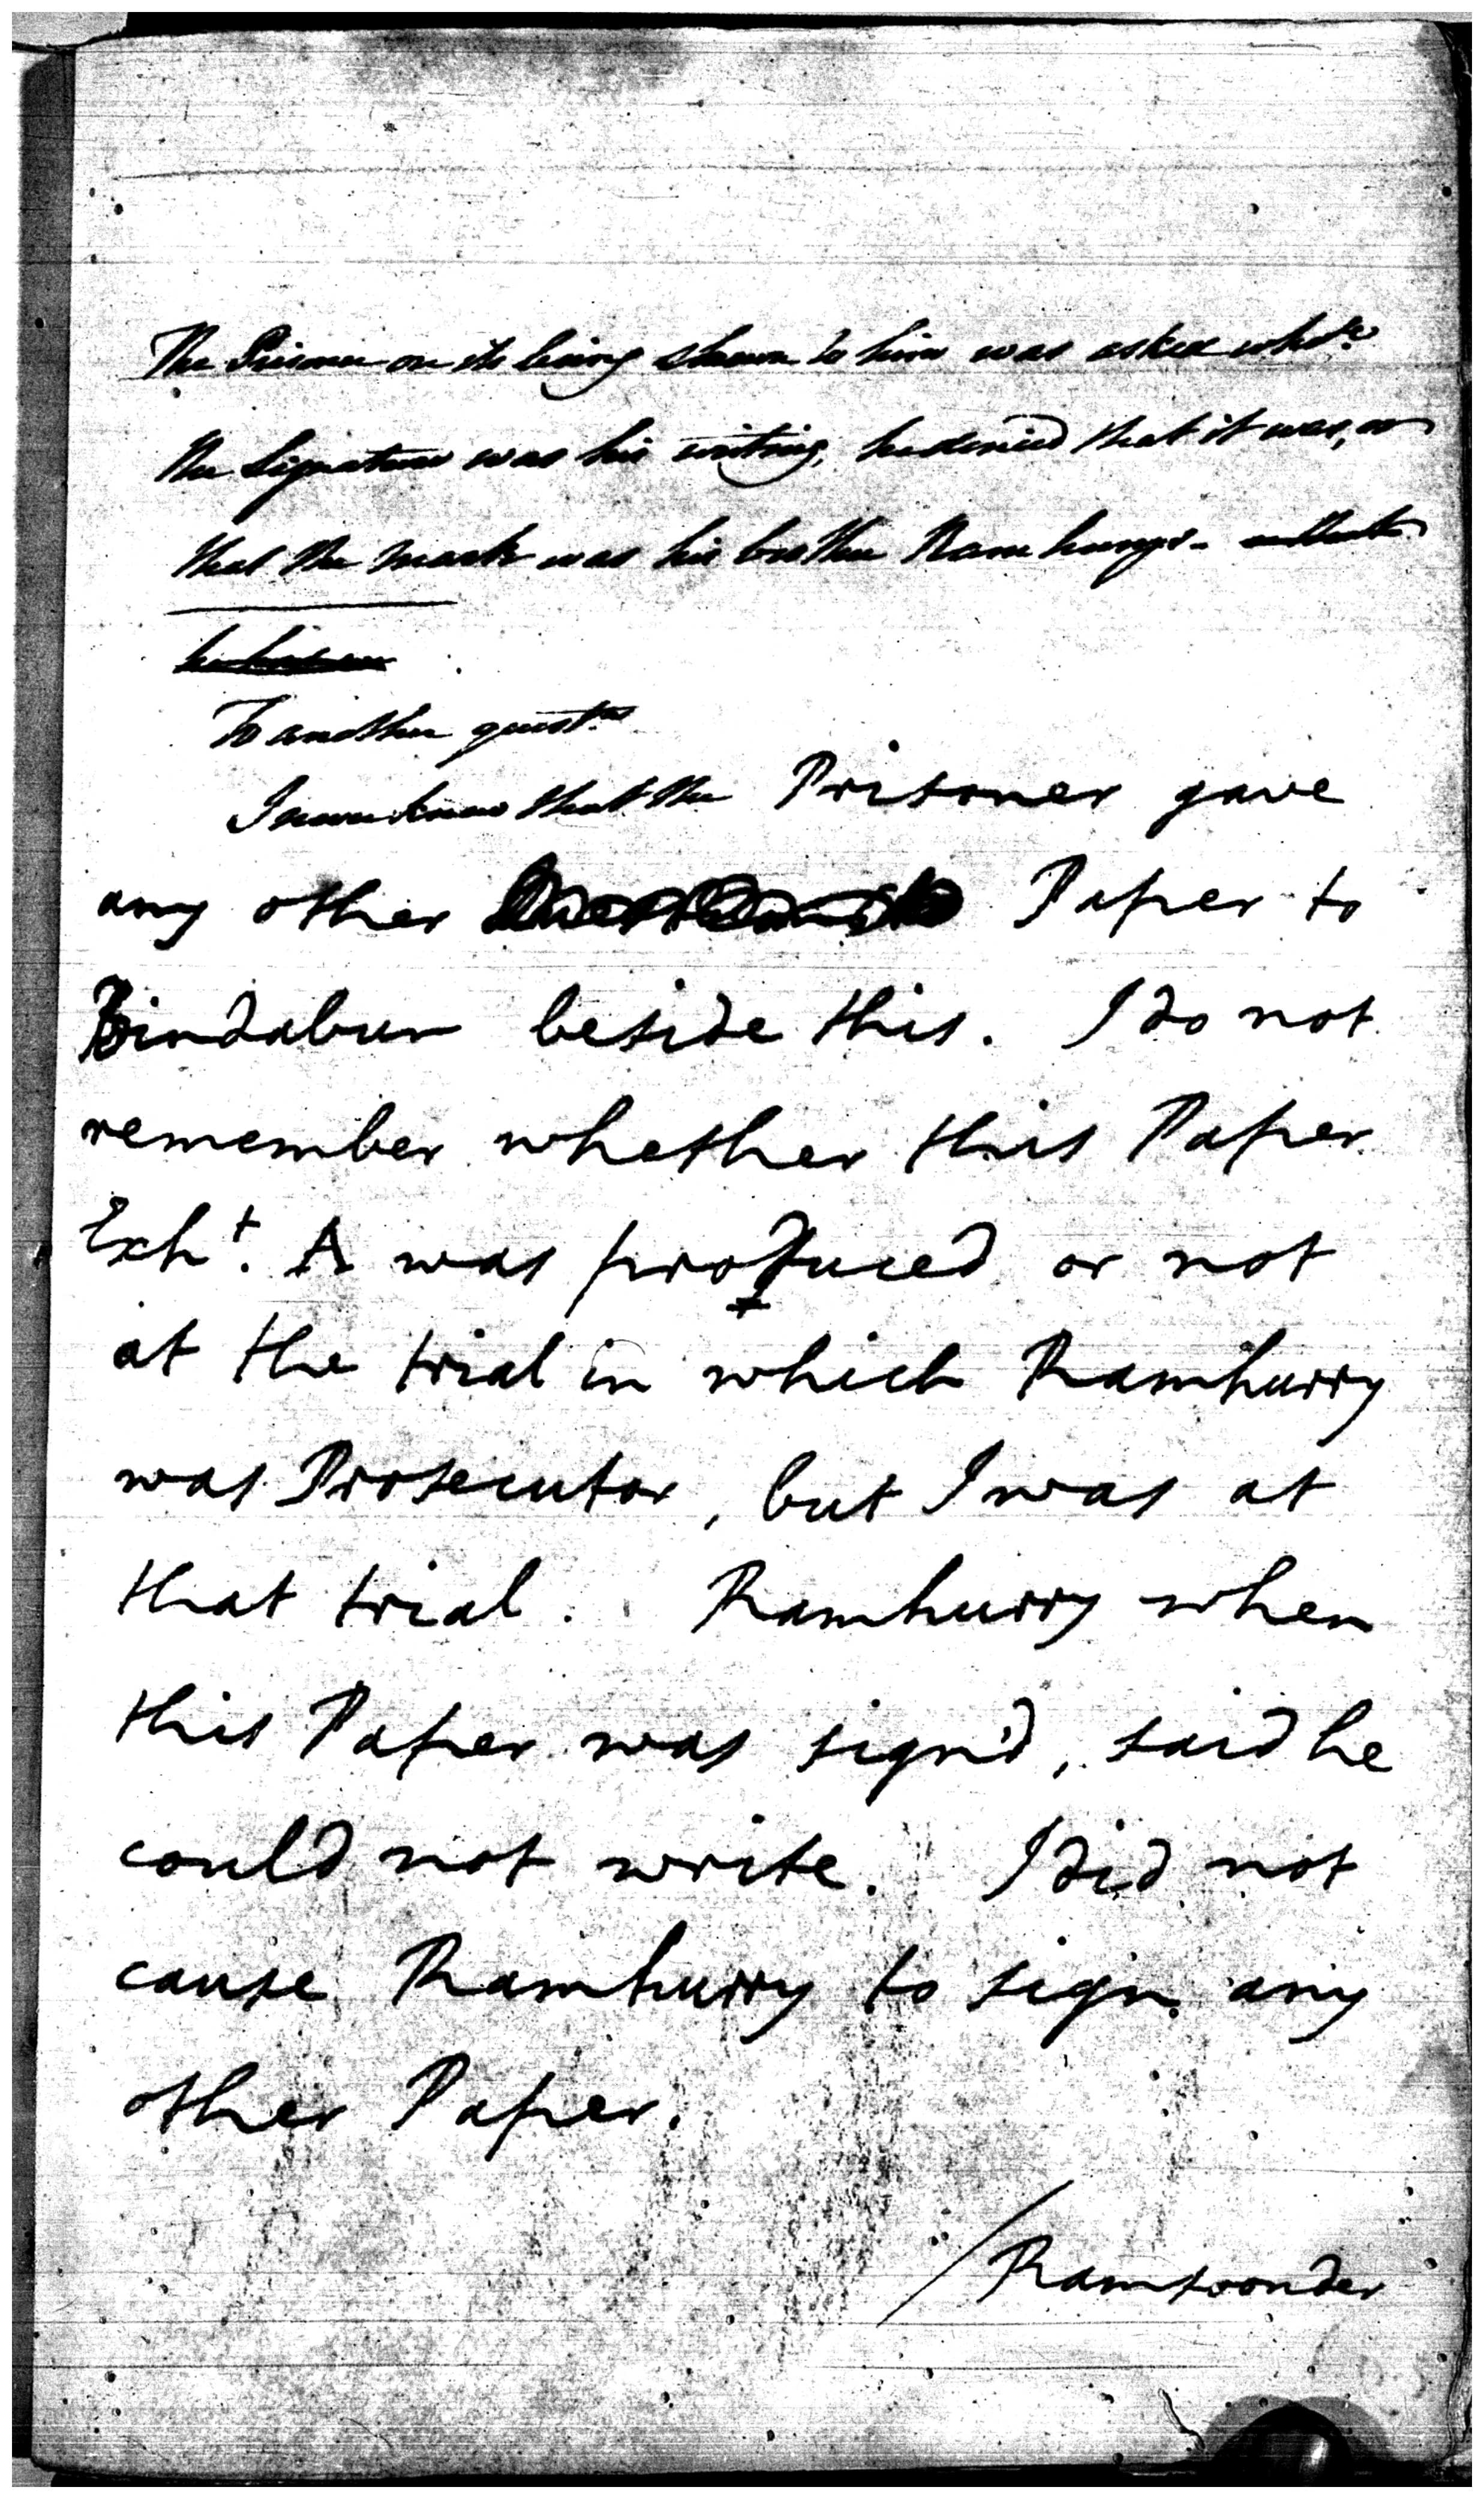 The Prisoner on its being shewn to him was asked whetr.
the Signature was his writing, he denied that it was, or
that the mark was his brother Ramhurry's.
To another questn.
I never knew that the Prisoner gave
any other Paper to
Bindabun beside this. I do not
remember whether this Paper
Exht. A was produced or not
at the trial in which Ramhurry
was Prosecutor, but I was at
that trial. Ramhurry when
this Paper was sign'd, said he
could not write. I did not
cause Ramhurry to sign any
other Paper.
/Ramsoonder